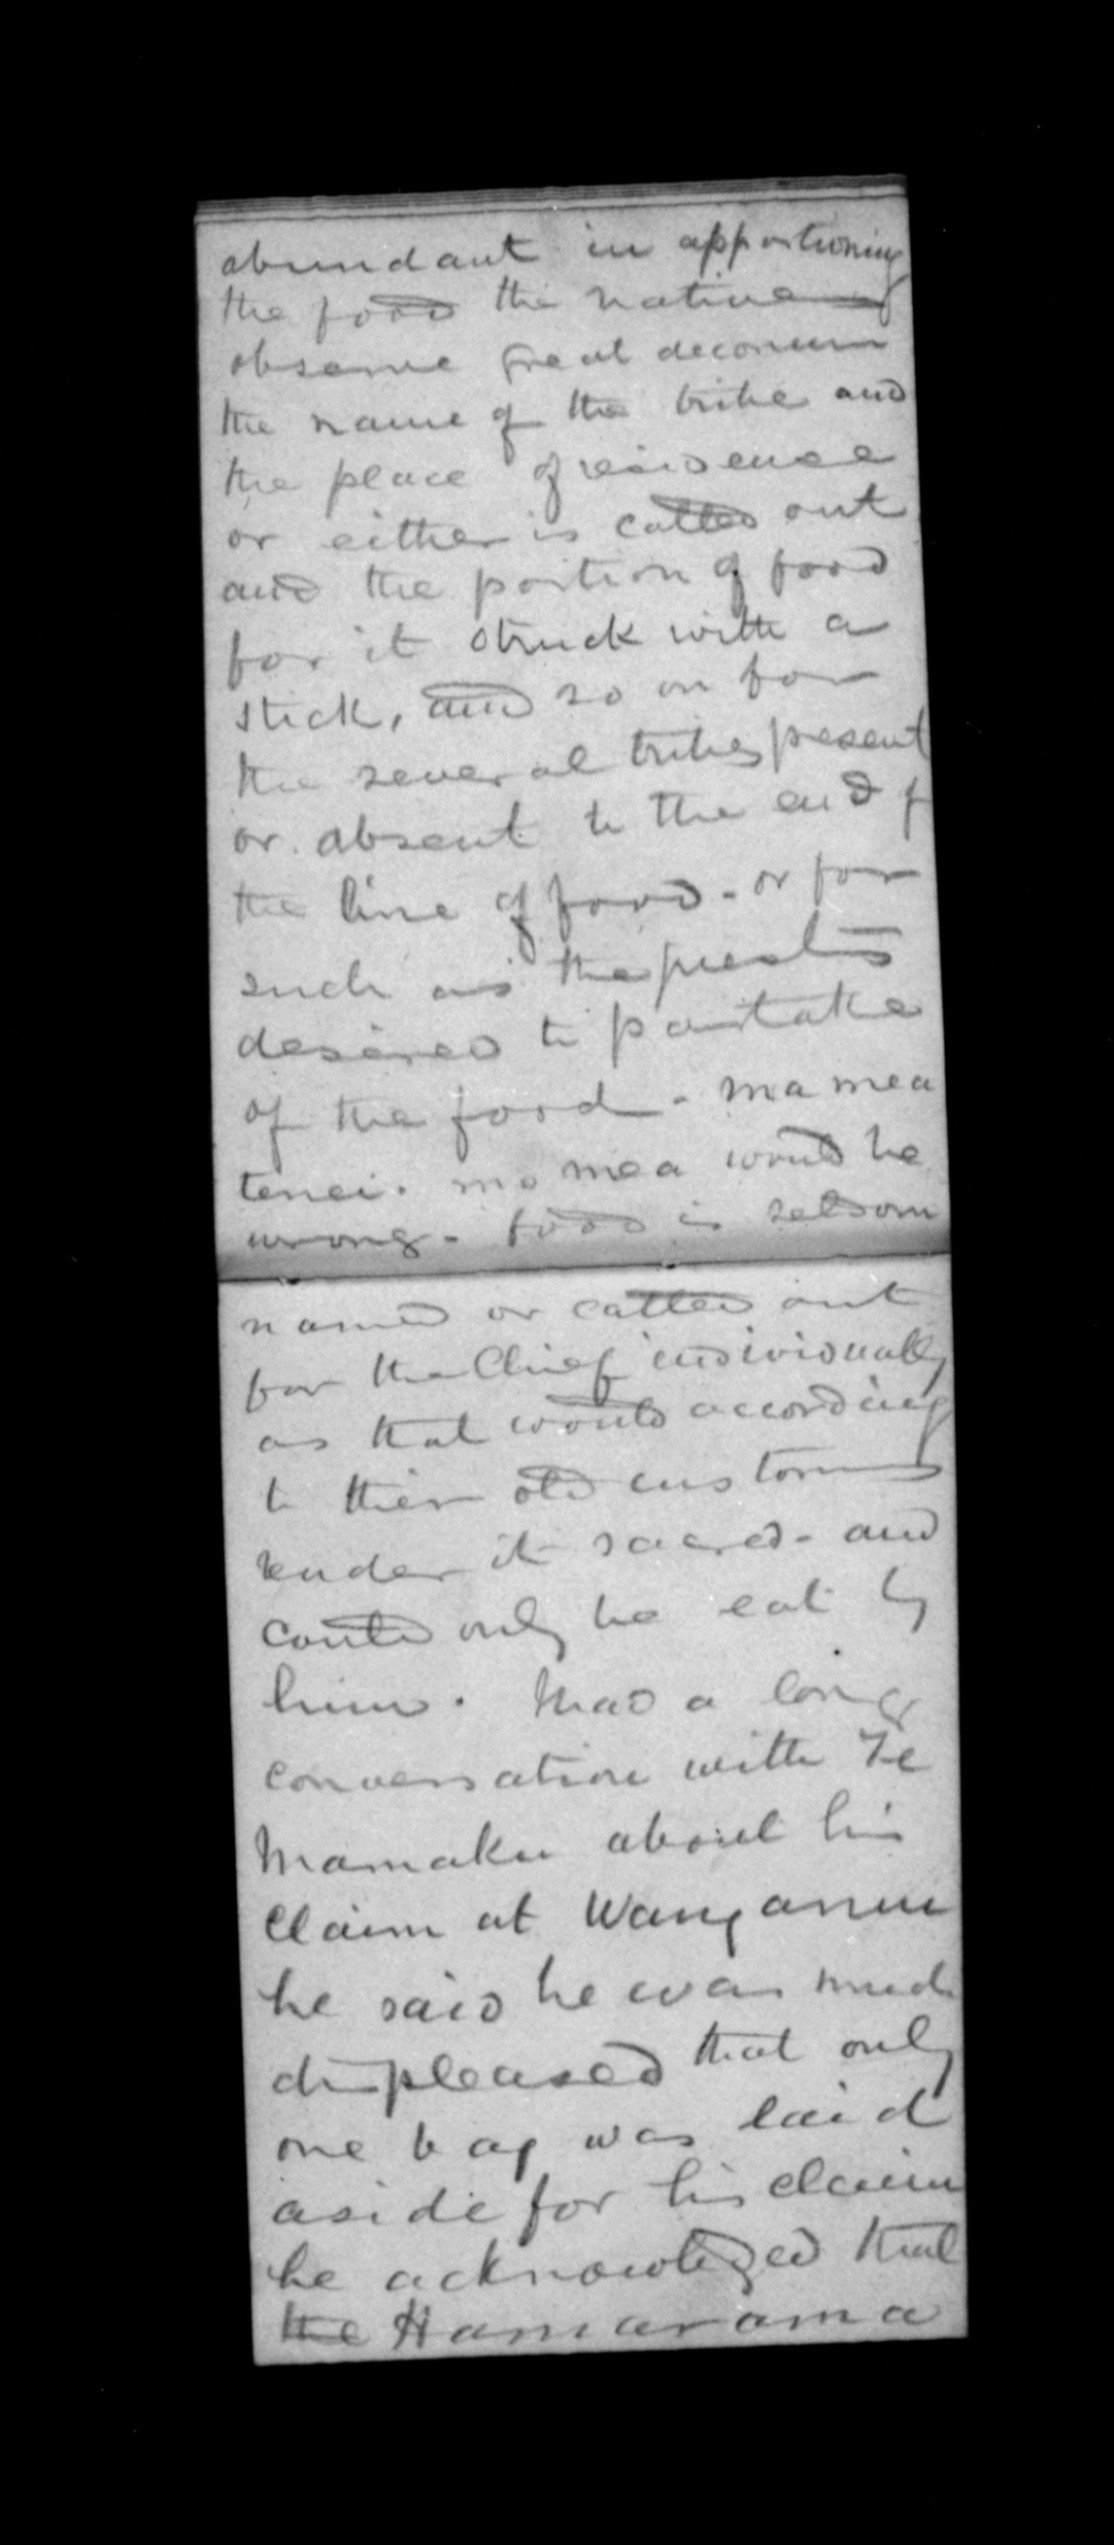 abundant in apportioning
the food the natives
observe great decorum
the name of the tribe and
the place of residence
or either is called out
and the portion of food
for it struck with a
stick, and so on for
the several tribes present
or absent to the end of
the line of food - or for
such as the priests
desired to partake
of the food - ma mea
tenei. mo mea would be
wrong - food is seldom
named or called out
for the Chief individually
as that would according
to their old customs
render it sacred - and
could only be eat by
him. Had a long
conversation with Te
Mamaku about his
claim at Wanganui
he said he was much
displeased that only
one bag was laid
aside for his claim
he acknowledged that
the Hamarama